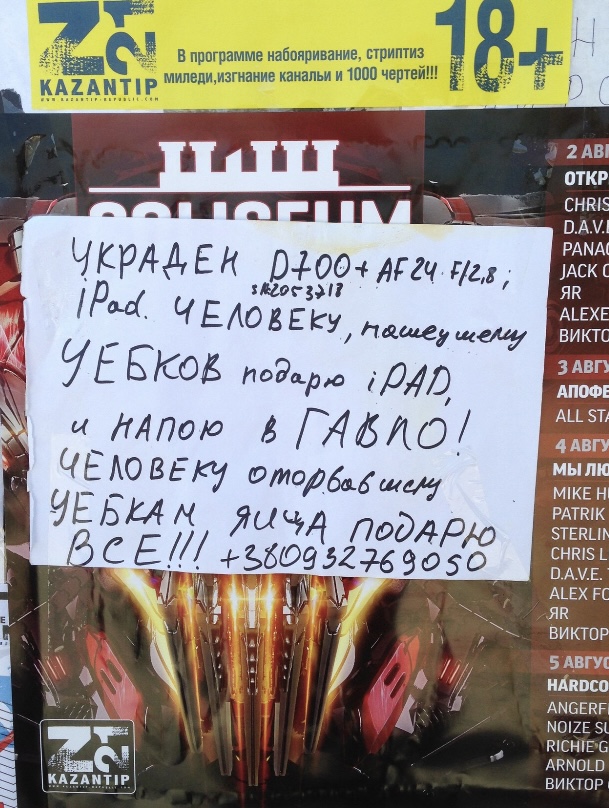 Z21
KAZANTIP
WWW.KAZANTIP-REPUBLIC.COM
В программе набояривание, стриптиз
миледи,изгнание канальи и 1000 чертей!!!
18+
COLISEUM
УКРАДЕН D700+ AF24 F/2,8;
iPad. ЧЕЛОВЕКУ, нашеушему
УЕБКОВ подарю iPAD,
и НАПОЮ в ГАВНО!
ЧЕЛОВЕКУ оторвавшему
УЕБКАМ ЯИЦА ПОДАРЮ
ВСЕ!!! +380932769050
2 АВГ
ОТКР
CHRIS
D.A.V.E
PANAC
JACK C
ЯR
ALEXE
ВИКТО
3 АВГУ
АПОФЕ
ALL STA
4 АВГУ
МЫ ЛЮ
MIKE HU
PATRIK
STERLIN
CHRIS L
D.A.V.E. T
ALEX FO
ЯR
ВИКТОР
5 АВГУС
HARDCO
ANGERF
NOIZE SU
RICHIE G
ARNOLD
ВИКТОР
Z21
KAZANTIP